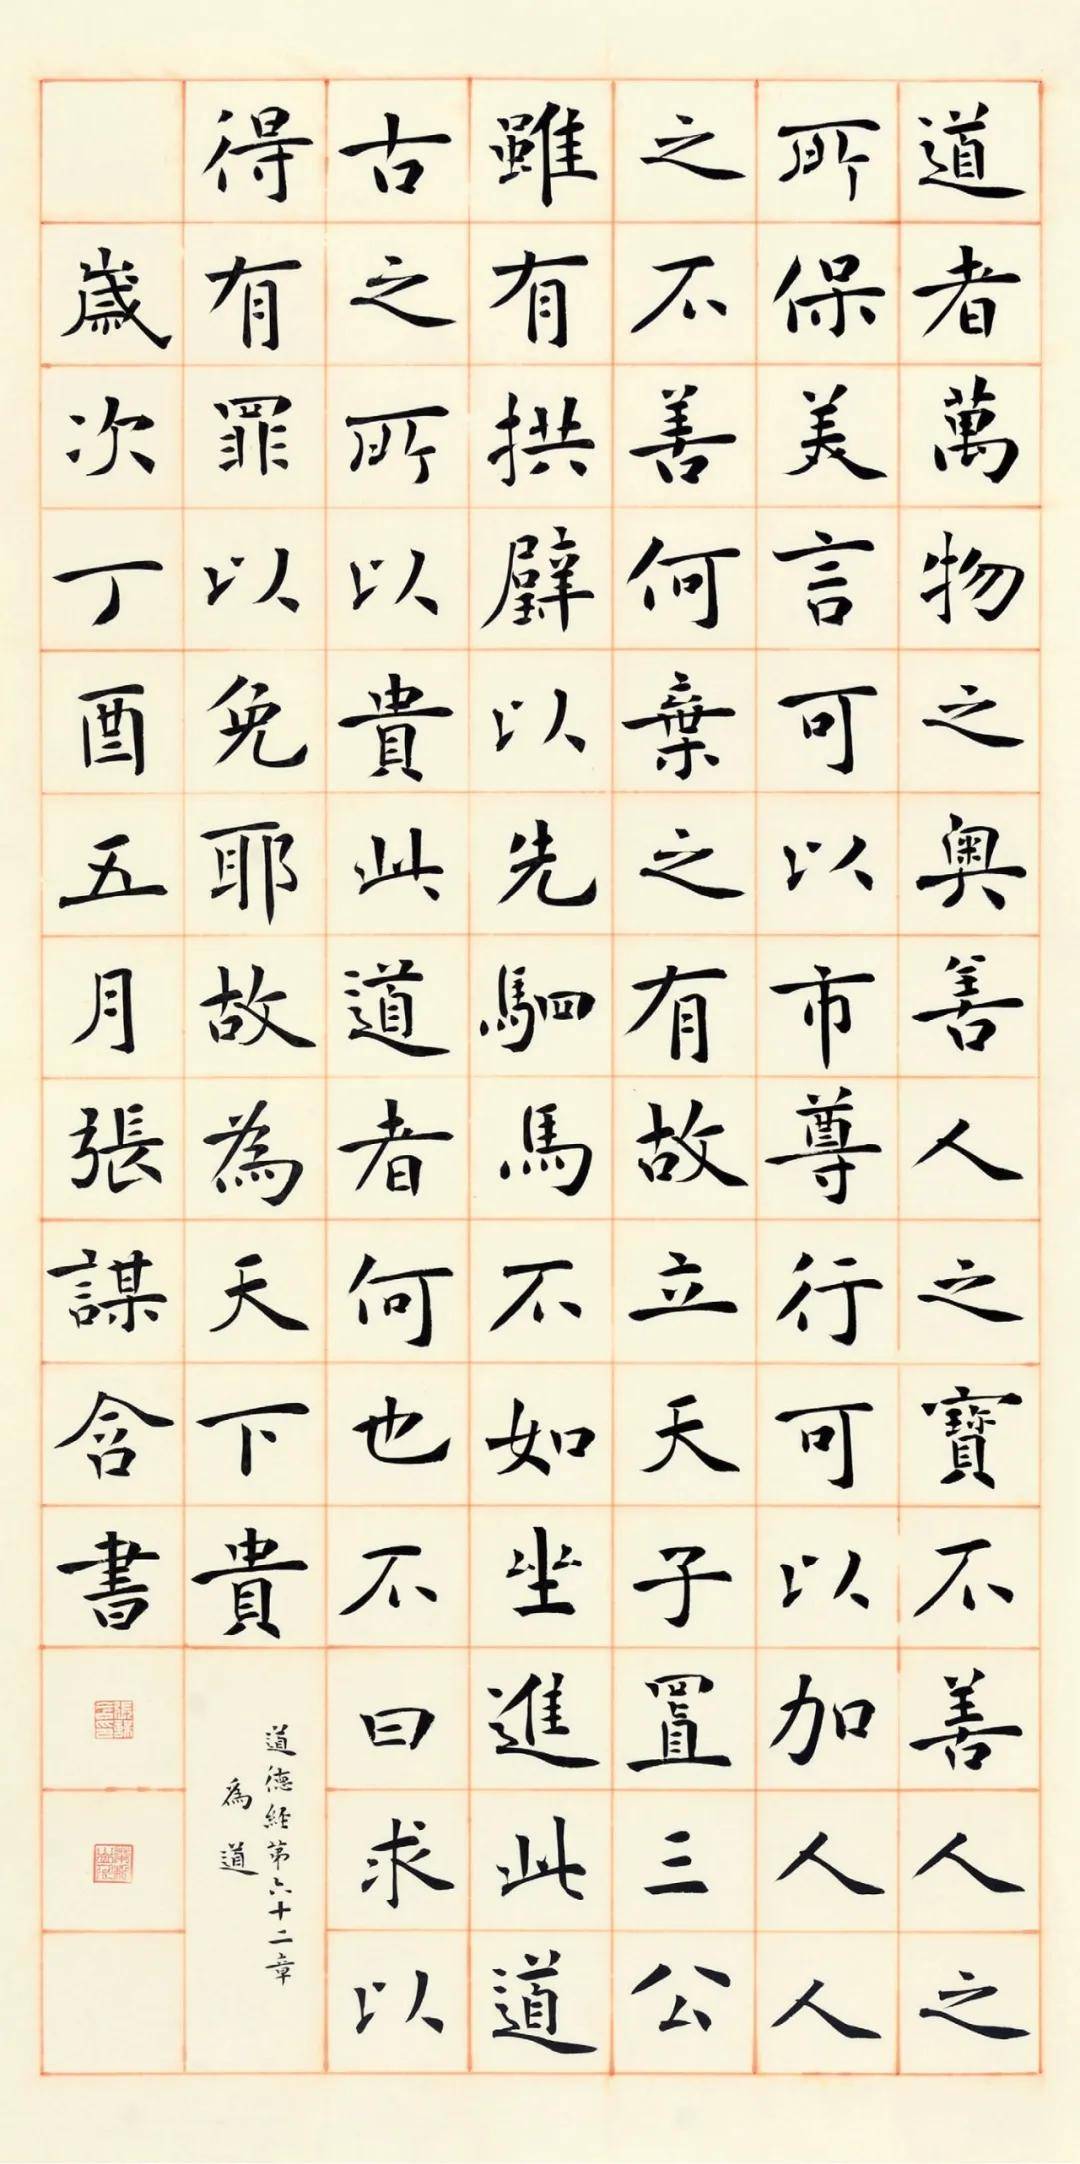 道者萬物之奥善人之寶不善人之
所保美言可以市尊行可以加人人
之不善何棄之有故立天子置三公
雖有拱璧以先駟馬不如坐進此道
古之所以貴此道者何也不曰求以
得有罪以免耶故為天下貴
道德經第六十二章
為道
歲次丁酉五月張謀含書